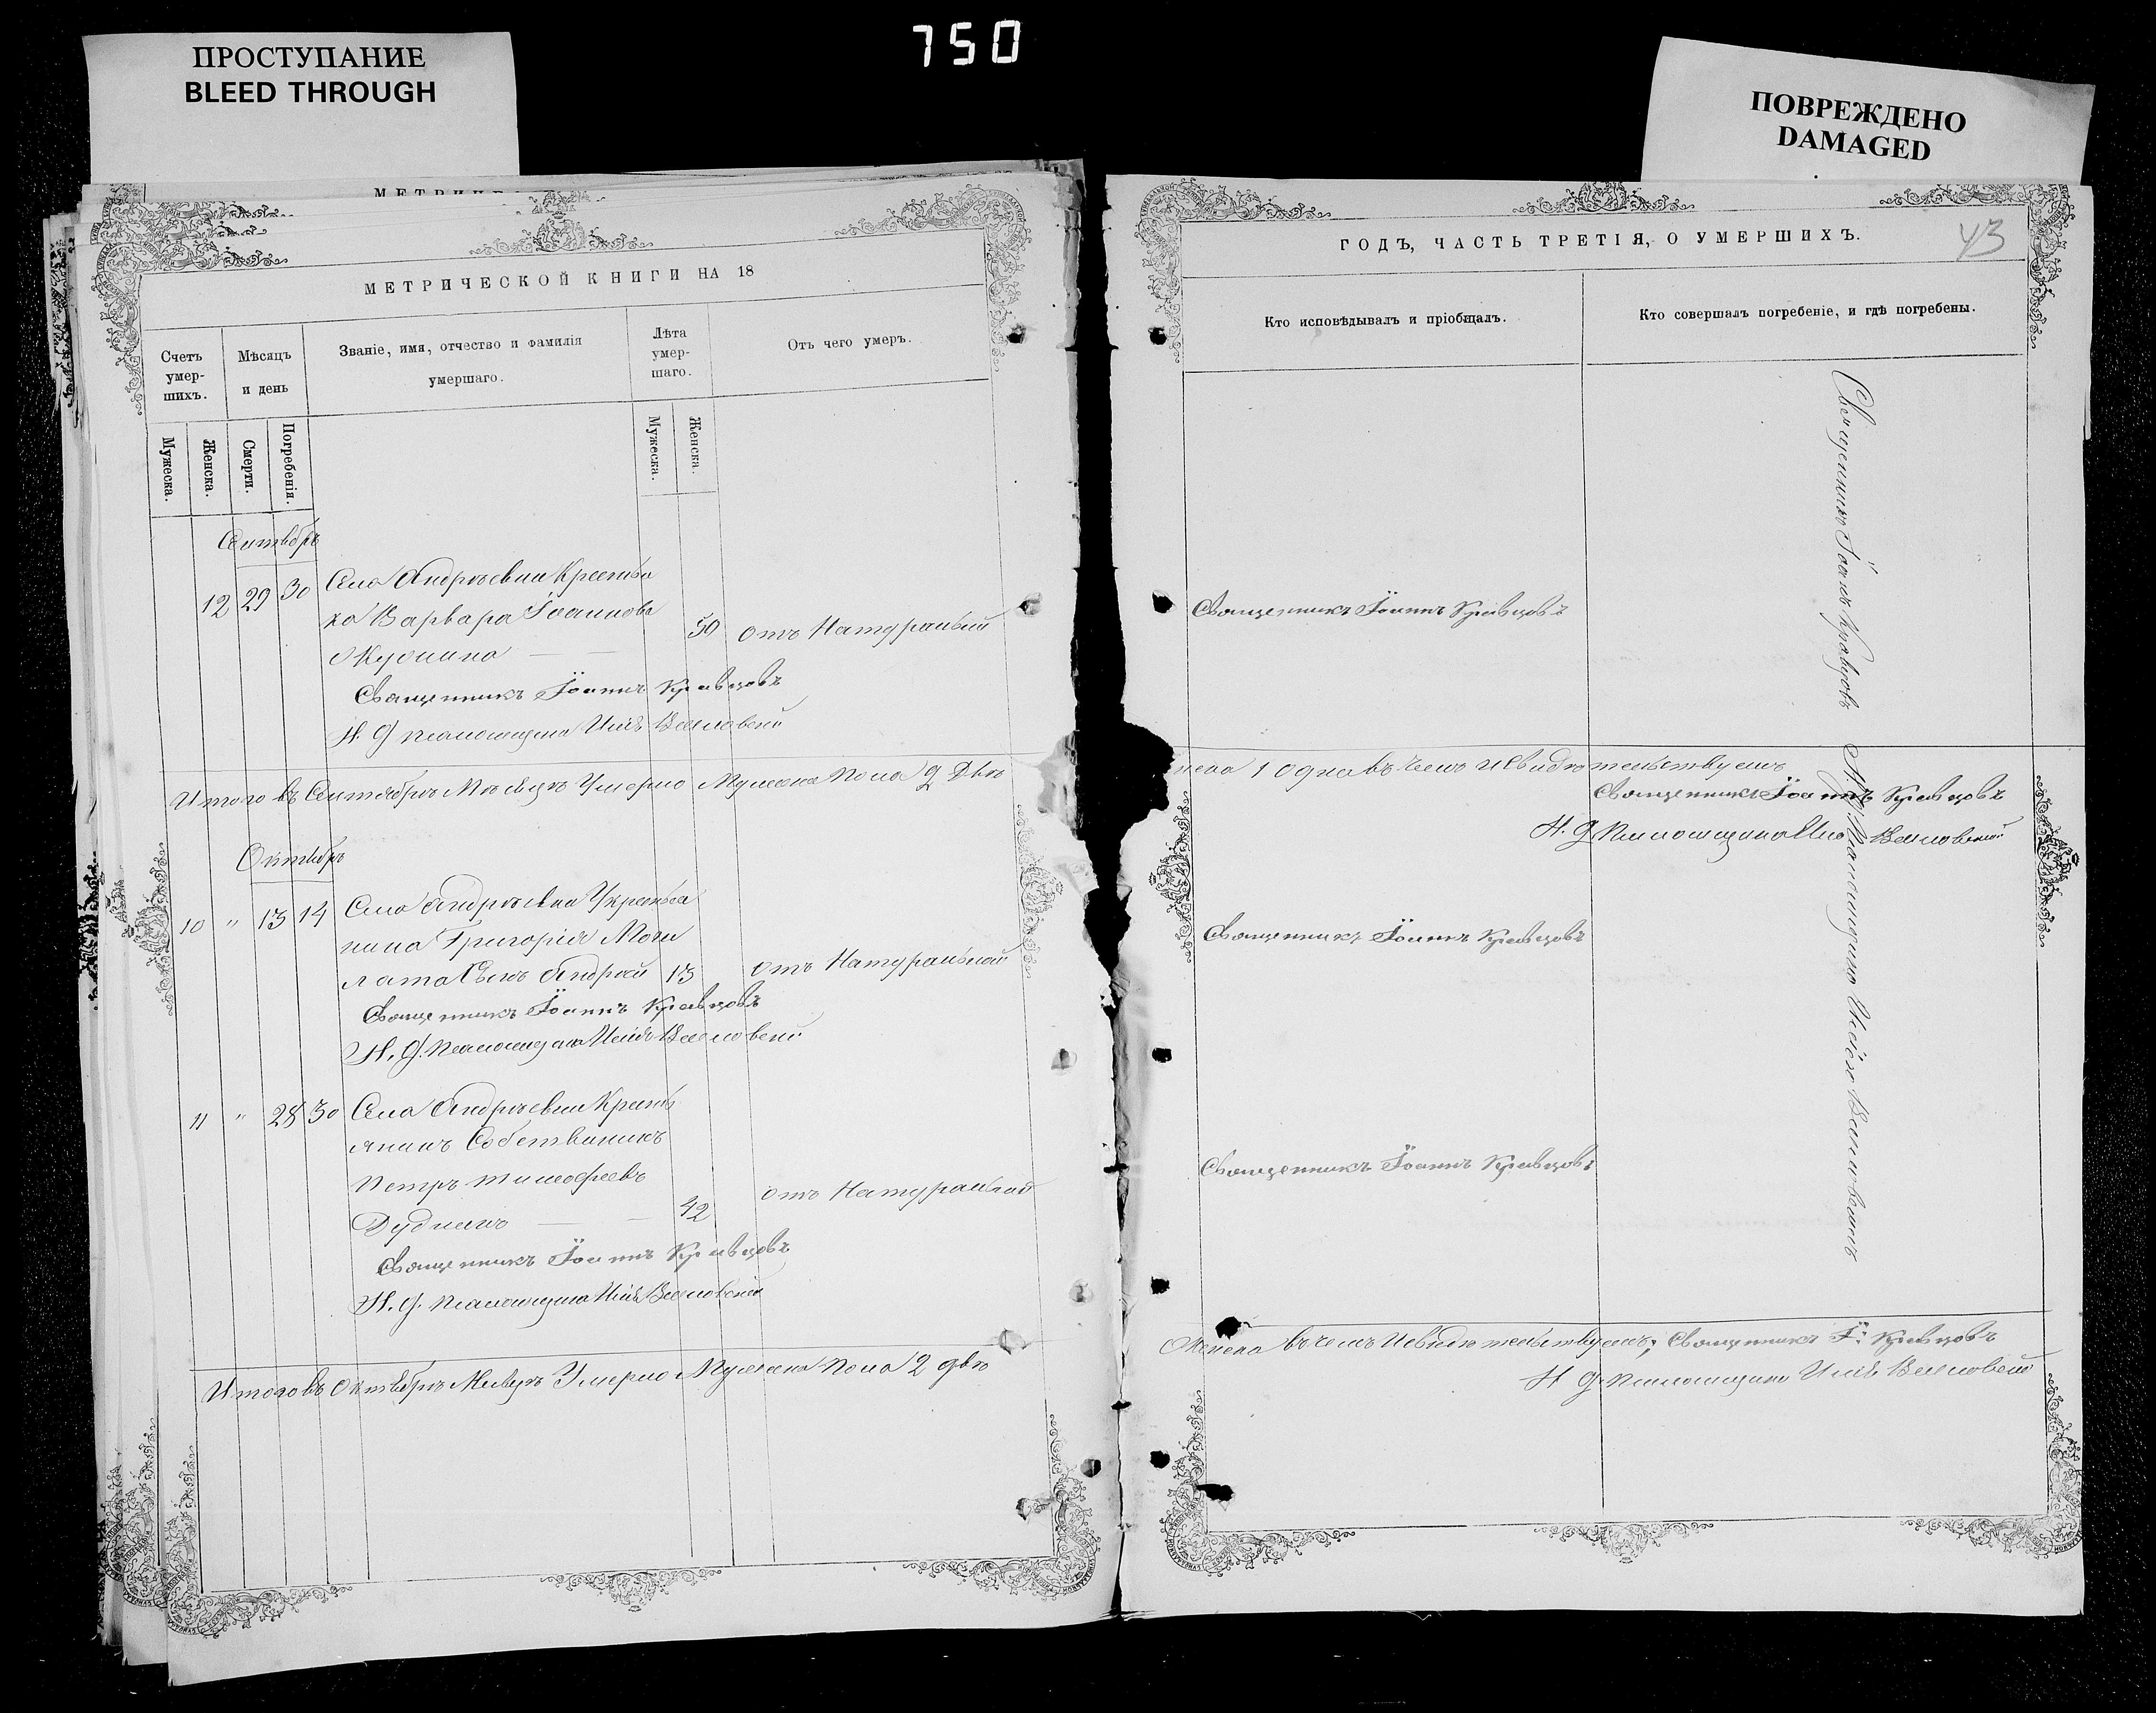 ПРОСТУПАНИЕ
BLEED THROUGH
750
ПОВРЕЖДЕНО
DAMAGED
МЕТРИЧЕ
МЕТРИЧЕСКОЙ КНИГИ НА 18
Счетъ умер-шихъ.
Мѣсяцъ и день
Званіе, имя, отчество и фамилія
умершаго.
Лѣта умер-шаго.
Отъ чего умеръ.
Мужеска.
Женска.
Смерти.
Погребенія.
Мужеска.
Женска.
Сентябръ
12 29 30 Села Андрѣевки Крестья
ка Варвара Іоаннова
50 отъ Натуральной
Священникъ Іоаннъ Кравцовъ
И. д. псаломщика Илія
Итого въ Сентябрѣ Мѣсяцѣ Умерло Мужеска Пола 2 Два
Октябръ
10 " 13 14 Села Андрѣевки Крестья
нина Григорія Моги
лата Сынъ Андрей 13 отъ Натуральной
Священникъ Іоаннъ Кравцовъ
И. д. Псаломщика Илія
11 " 28 30 Села Андрѣевки Кресть
янинъ Собственикъ
Петръ Тимофеевъ
Дудникъ 42 отъ Натуральной
Священникъ Іоаннъ Кравцовъ
И. д. Псаломщика Илія
Итого въ Октябрѣ Мѣсяцѣ Умерло Мужеска Пола 2 два
ГОДЪ, ЧАСТЬ ТРЕТІЯ, О УМЕРШИХЪ.
43
Кто исповѣдывалъ и пріобщалъ.
Кто совершалъ погребеніе, и гдѣ погребены.
Священникъ Іоаннъ Кравцовъ
Священникъ Іоаннъ Кравцовъ И. д. Псаломщика
1 одна въ чемъ и свидѣтельствуемъ
Священникъ Іоаннъ Кравцовъ
И. д. Псаломщика Илія
Священникъ Іоаннъ Кравцовъ
Священникъ Іоаннъ Кравцовъ
въ чемъ и свидѣтельствуемъ; Священникъ І. Кравцовъ
И. д. Псаломщика Илія